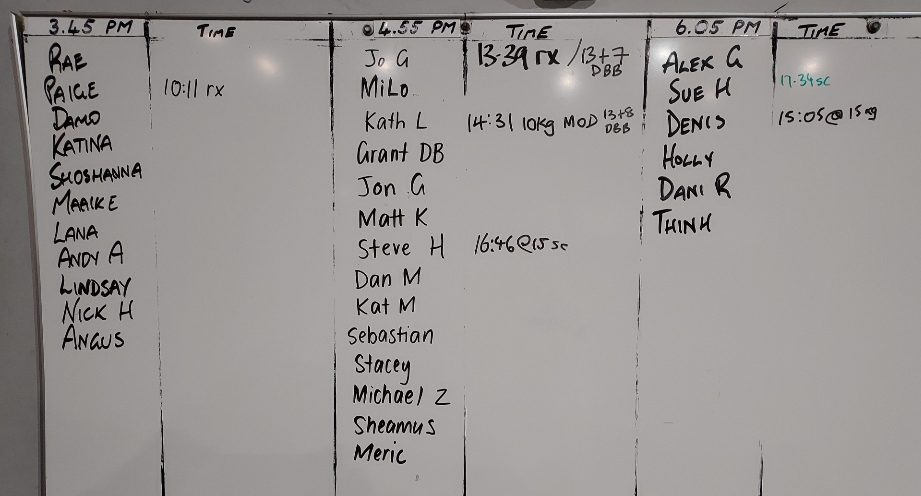 3.45 PM TIME 4.55 PM TIME 6.05 PM TIME
RAE
PAIGE 10:11 rx
DAMO
KATINA
SHOSHANNA
MAAIKE
LANA
ANDY A
LINDSAY
NICK H
ANGUS
Jo G 13-39 rx /13+7
DBB
MiLo
Kath L 14:31 10kg MOD 13+8
DBB
Grant DB
Jon G
Matt K
Steve H 16:46@15 sc
Dan M
Kat M
Sebastian
Stacey
Michael Z
Sheamus
Meric
ALEX G
SUE H 17.34 sc
DENIS 15:05@15
HOLLY
DANI R
THINH